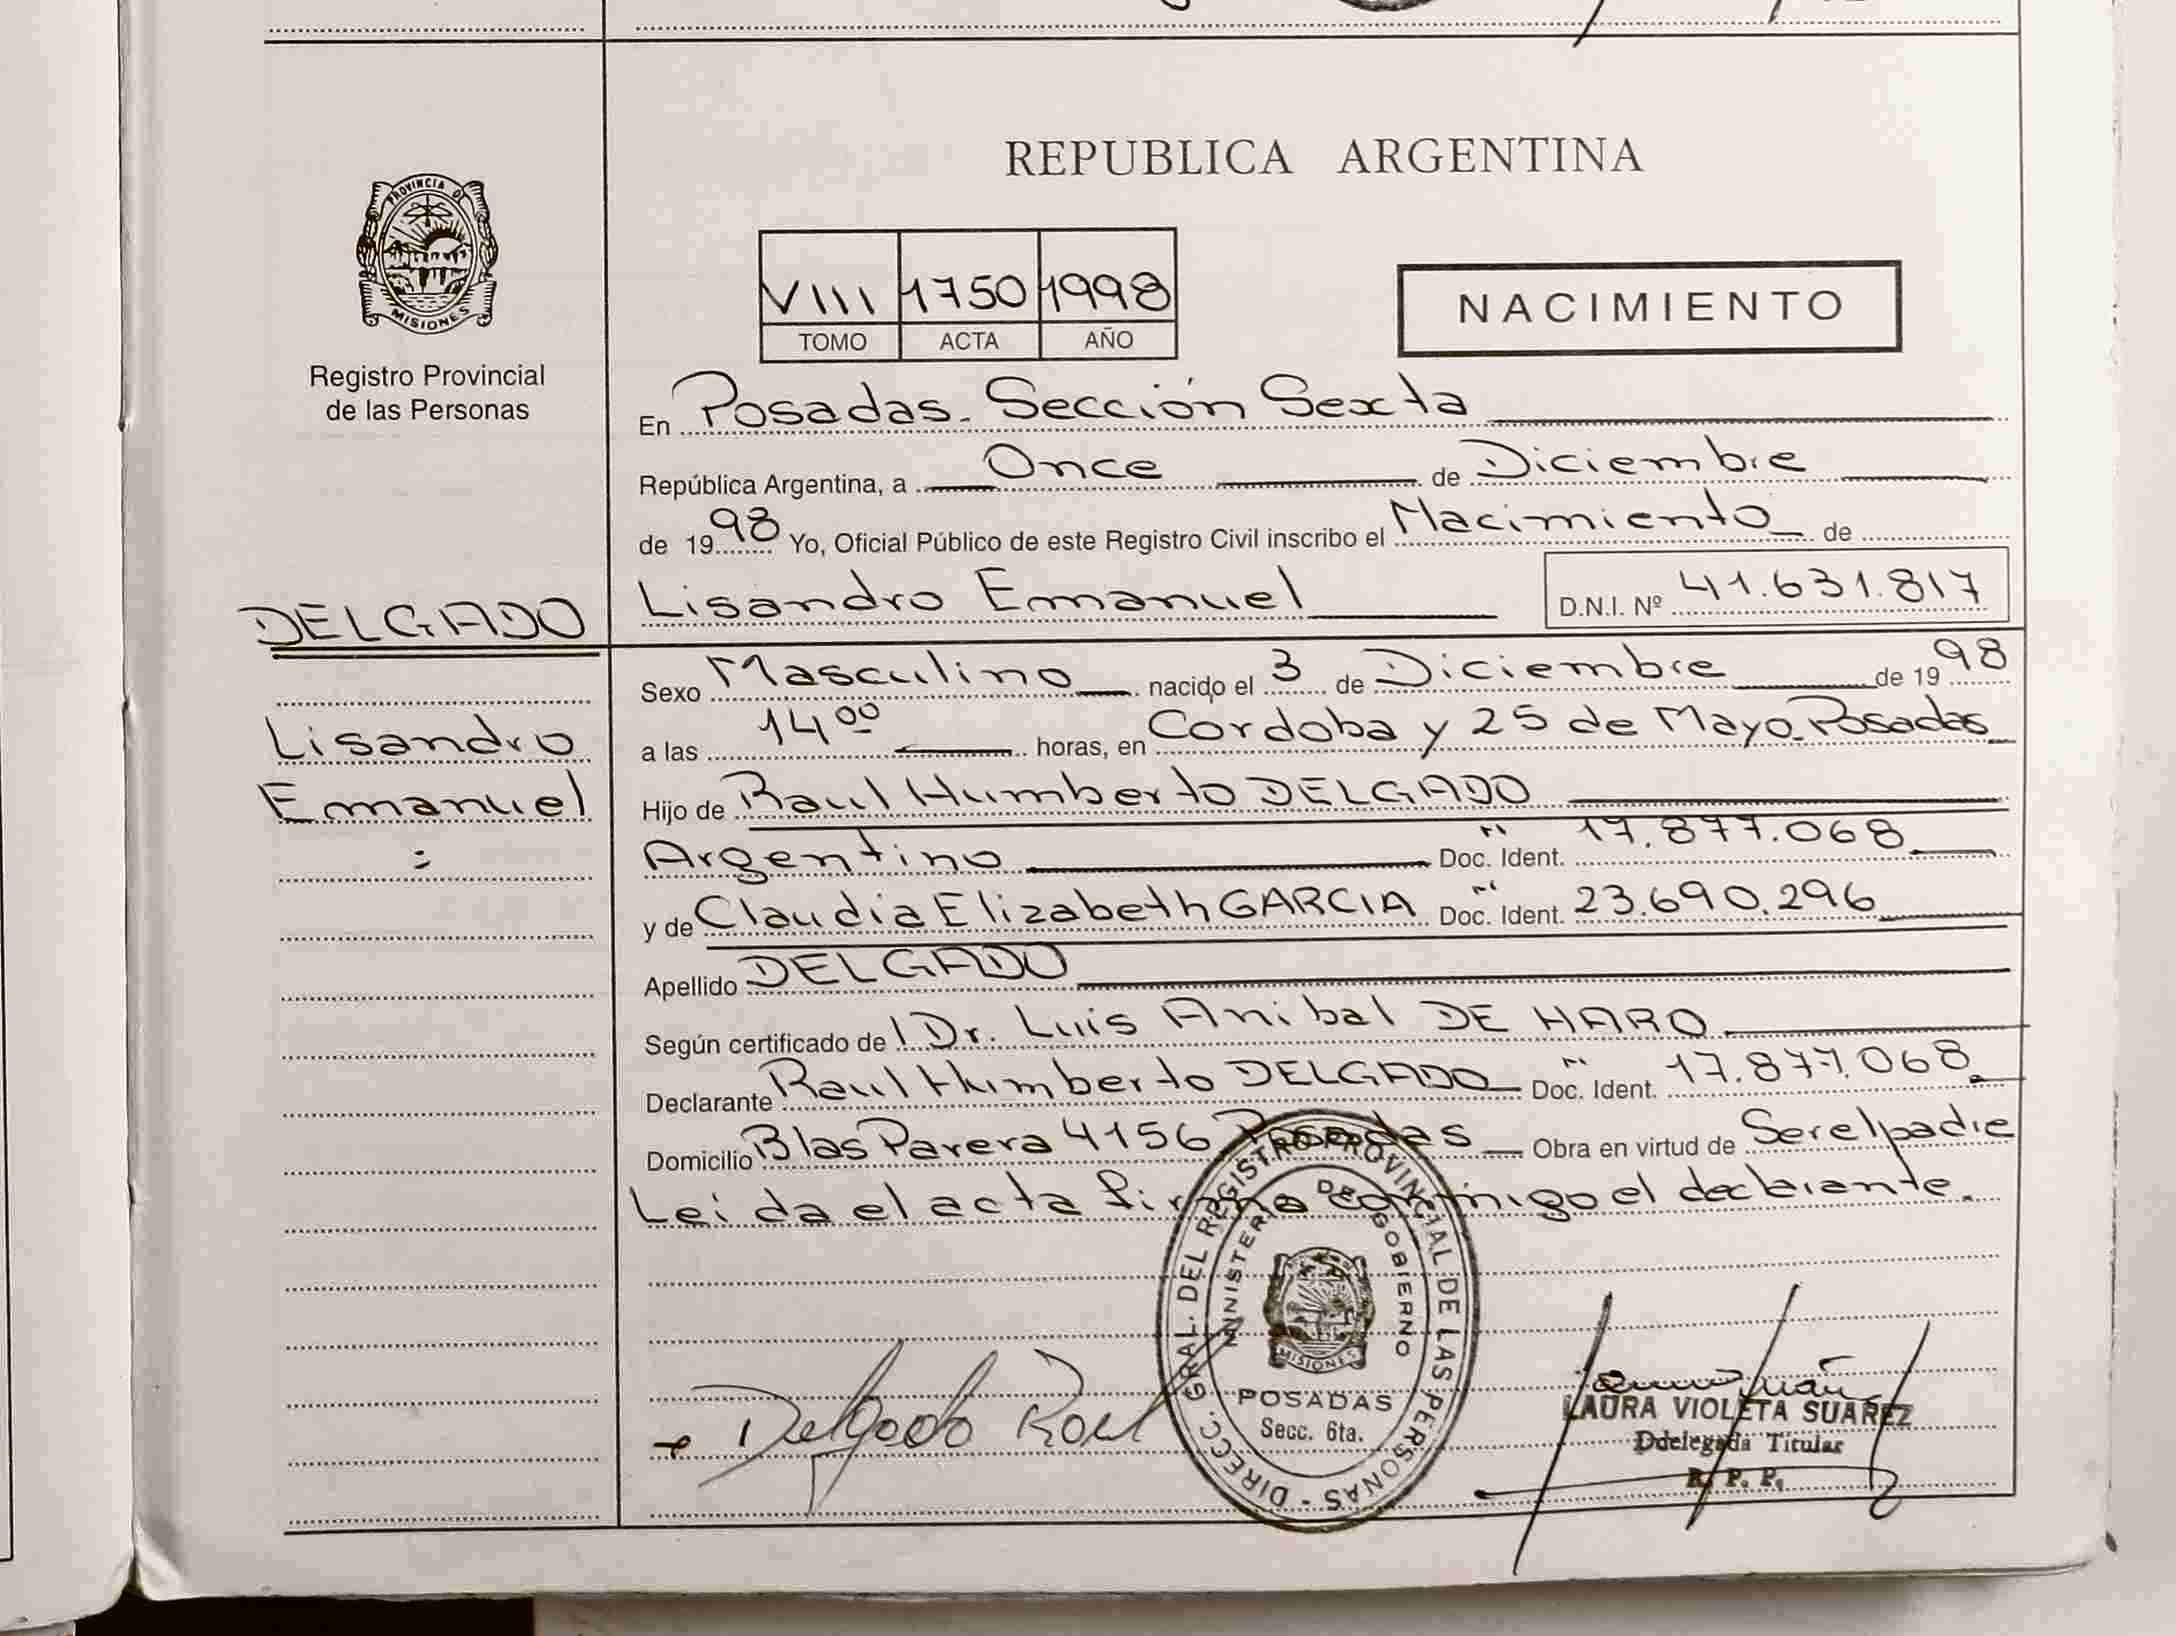 REPUBLICA ARGENTINA
PROVINCIA DE
MISIONES
Registro Provincial
de las Personas
VIII 1750 1998
TOMO ACTA AÑO
NACIMIENTO
En Posadas. Sección Sexta
República Argentina, a Once de Diciembre
de 1998 Yo, Oficial Público de este Registro Civil inscribo el Nacimiento de
Lisandro Emanuel D.N.I. Nº 41.631.817
DELGADO
Lisandro
Emanuel
Sexo Masculino nacido el 3 de Diciembre de 1998
a las 14 00 horas, en Cordoba y 25 de Mayo. Posadas
Hijo de Raul Humberto DELGADO
Argentino Doc. Ident. 17.877.068
y de Claudia Elizabeth GARCIA Doc. Ident. 23.690.296
Apellido DELGADO
Según certificado de l Dr. Luis Anibal DE HARO
Declarante Raul Humberto DELGADO Doc. Ident. 17.877.068
Domicilio Blas Parera 4156 Posadas Obra en virtud de Ser el padre
Leida el acta firma conmigo el declarante.
DIRECC. GRAL. DEL REGISTRO PROVINCIAL DE LAS PERSONAS -
MINISTERIO DE GOBIERNO
MISIONES
POSADAS
Secc. 6ta.
Delgado Raul
LAURA VIOLETA SUAREZ
Ddelegada Titular
R. P. P.